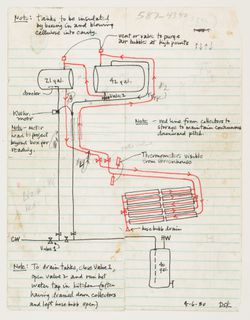 Note: tanks to be insulated
by boxing in and blowing
cellulose into cavity.
vent or valve to purge
air bubbles @ high points
21 gal.
42 gal.
Valve 2
Water
meter
Note: meter
head to project
beyond box for
reading.
Note: red line from collectors to
storage to maintain continuous
downward pitch.
Thermometers visible
from
hose bibb drain
CW
Valve 1
HW
Note: To drain tanks, close Valve 1,
open valve 2 and run hot
water tap in kitchen (after
having drained down collectors
and left hose bibb open)
40
gal.
4-6-80